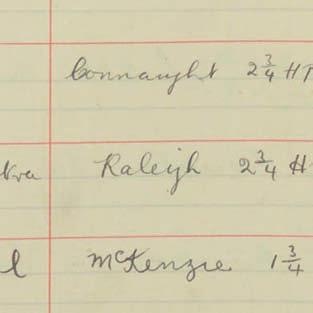 Connaught 2 3/4 HT
Raleigh 2 3/4 H
l McKenzie 1 3/4